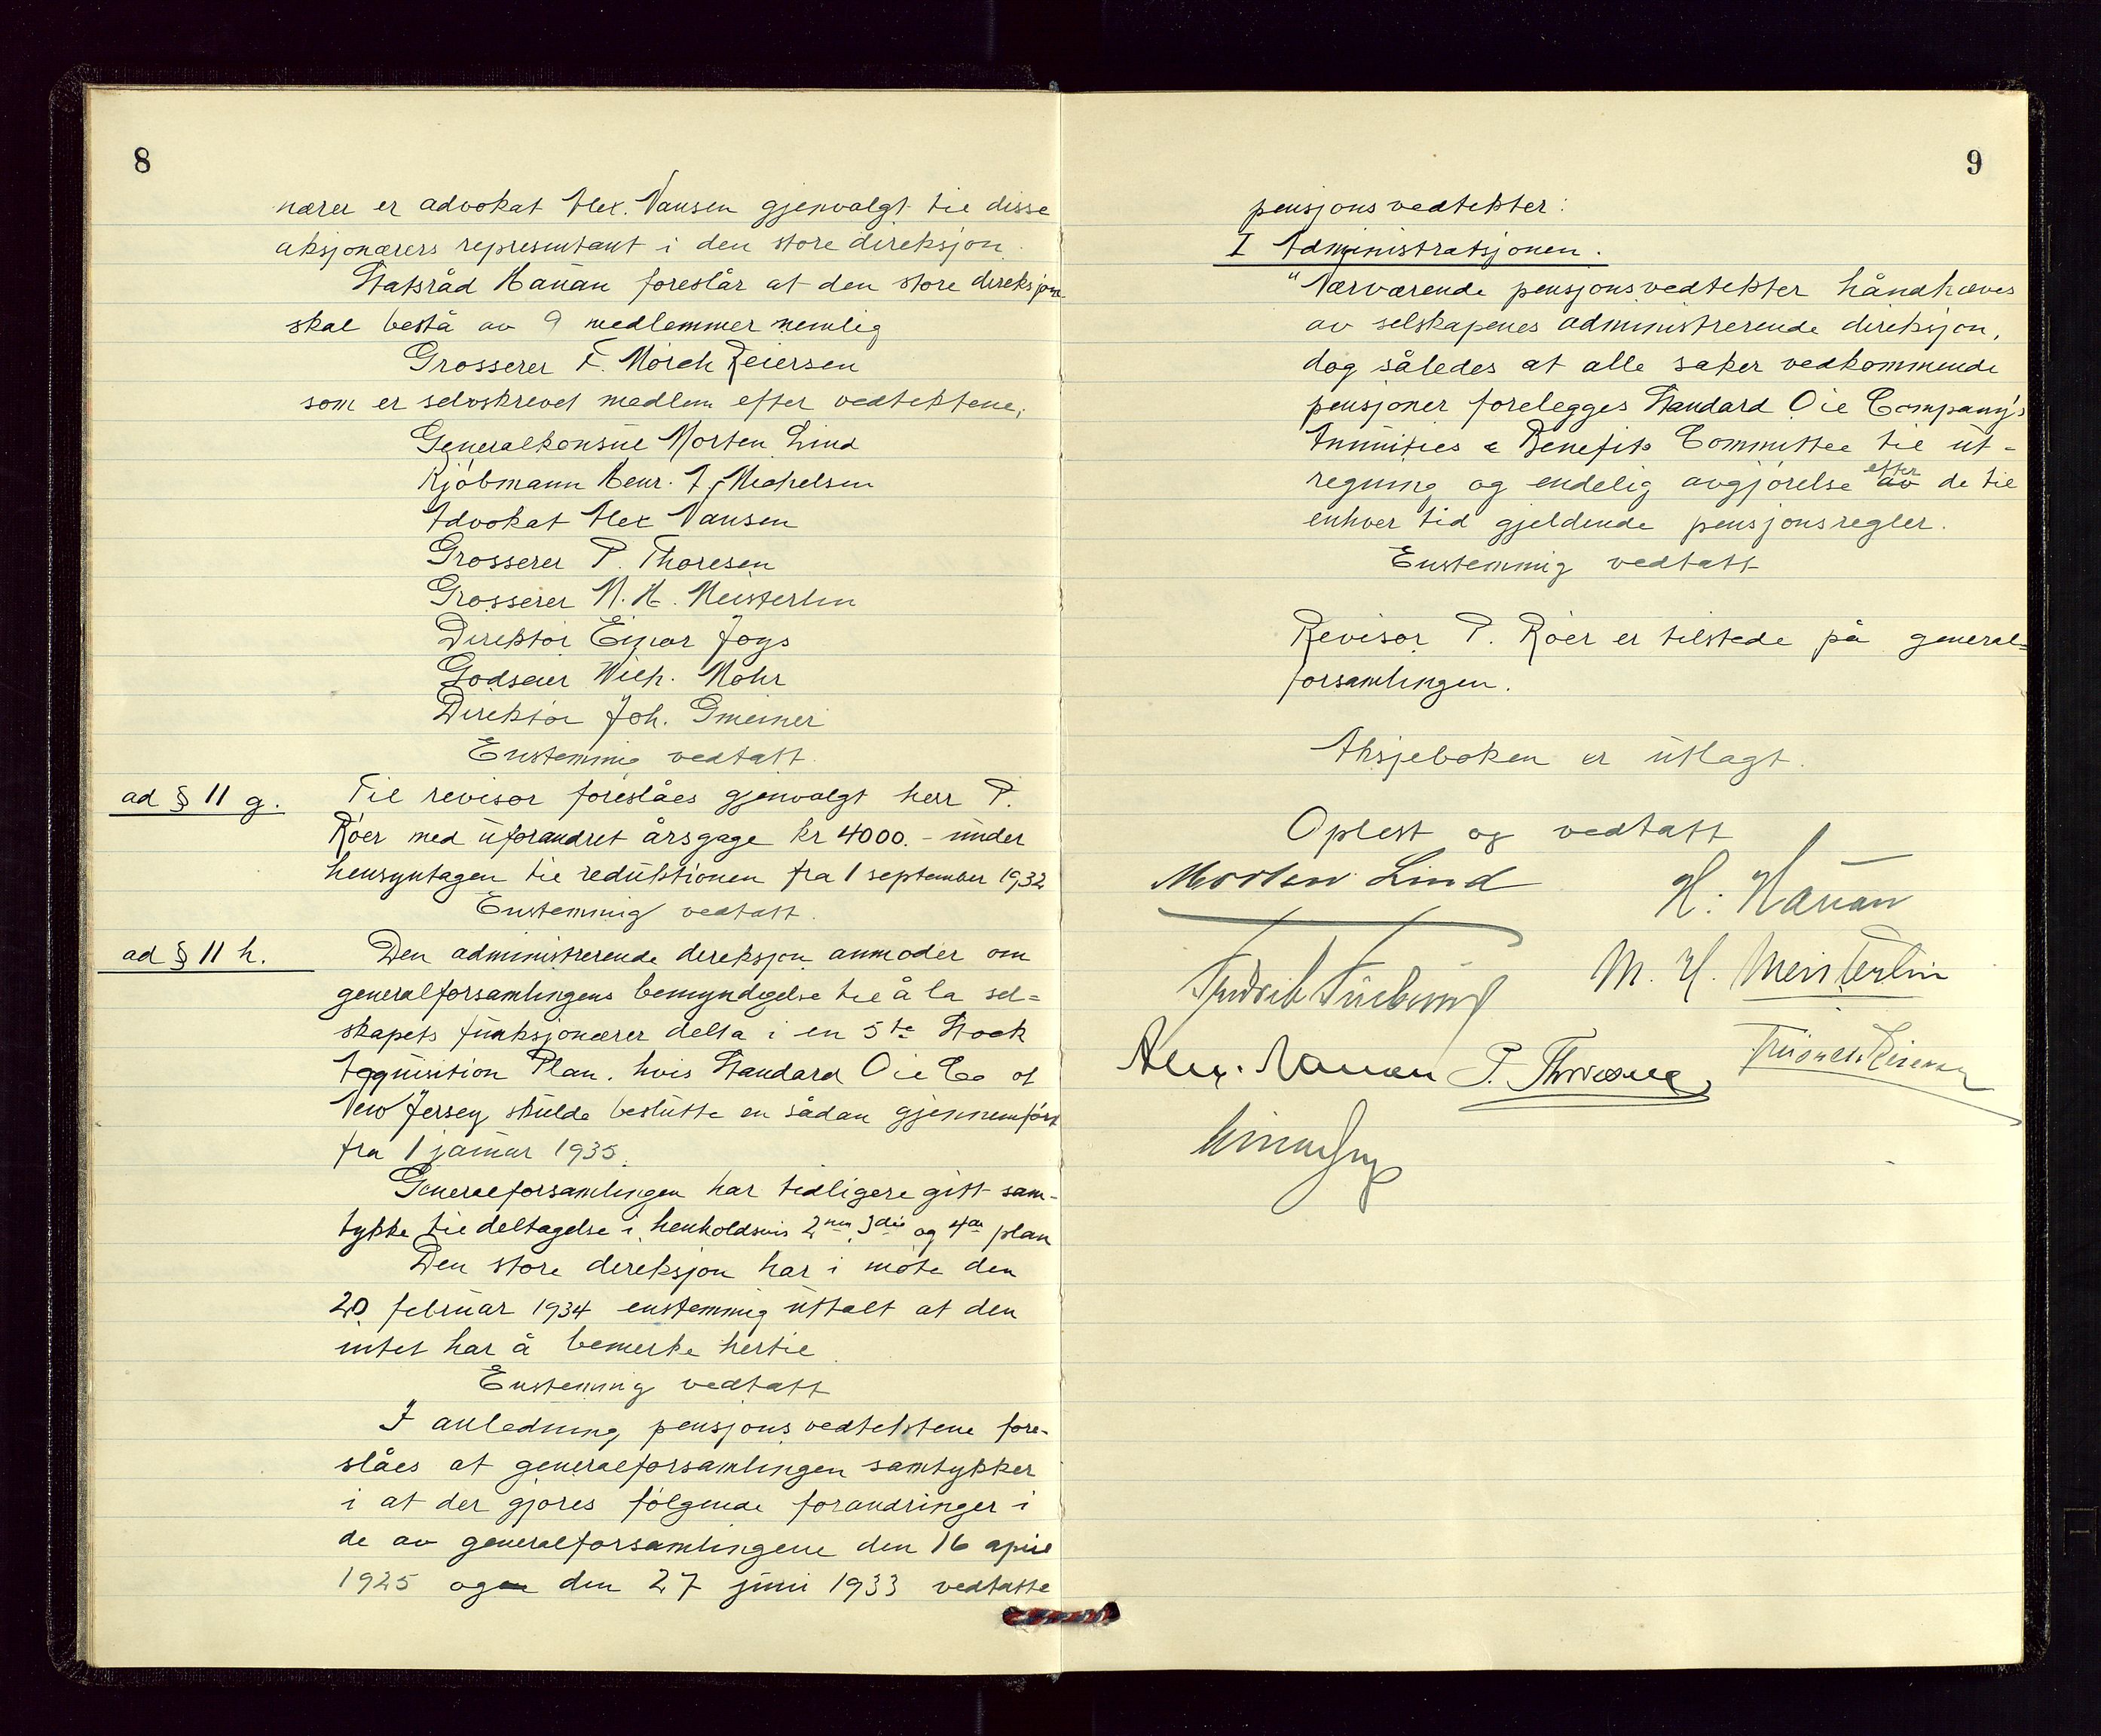 8
nærer er advokat Alex. Nansen gjenvalgt til disse
aksjonærers representant i den store direksjon.
Statsråd Hauan foreslår at den store direksjon
skal bestå av 9 medlemmer nemlig
Grosserer F. Mørch Reiersen
som er selvskrevet medlem efter vedtektene,
Generalkonsul Morten Lind
Kjøbmann Henr. A. Michelsen
Advokat Alex Nansen
Grosserer P. Thoresen
Grosserer M. H. Meisterlin
Direktør Einar Joys
Godseier Wilh. Mohr
Direktør Joh. Gmeiner
Enstemmig vedtatt.
ad § 11 g. Til revisor foreslåes gjenvalgt herr P.
Røer med uforandret årsgage kr 4000.- under
hensyntagen til reduktionen fra 1 september 1932
Enstemmig vedtatt.
ad § 11 h. Den administrerende direksjon anmoder om
generalforsamlingens bemyndigelse til å la sel-
skapets funksjonærer delta i en 5te Stock
Acquisition Plan, hvis Standard Oil Co of
New Jersey skulde beslutte en sådan gjennemført
fra 1 januar 1935.
Generalforsamlingen har tidligere gitt sam-
tykke til deltagelse i henholdsvis 2nen, 3die og 4de plan
Den store direksjon har i møte den
20. februar 1934 enstemmig uttalt at den
intet har å bemerke hertil.
Enstemmig vedtatt
I anledning pensjonsvedtektene fore-
slåes at generalforsamlingen samtykker
i at der gjøres følgende forandringer i
de av generalforsamlingene den 16 april
1925 og den 27 juni 1933 vedtatte
9
pensjonsvedtekter:
I Administratsjonen.
"Nærværende pensjonsvedtekter håndhæves
av selskapenes administrerende direksjon,
dog således at alle saker vedkommende
pensjoner forelegges Standard Oil Company's
Annuities & Benefits Committee til ut-
regning og endelig avgjørelse efter av de til
enhver tid gjeldende pensjonsregler.
Enstemmig vedtatt
Revisor P. Røer er tilstede på general-
forsamlingen.
Aksjeboken er utlagt.
Oplest og vedtatt
Morten Lind H. Hauan
Fredrik M. H. Meisterlin
Alex. Nansen P. Thoresen
Einar Joys